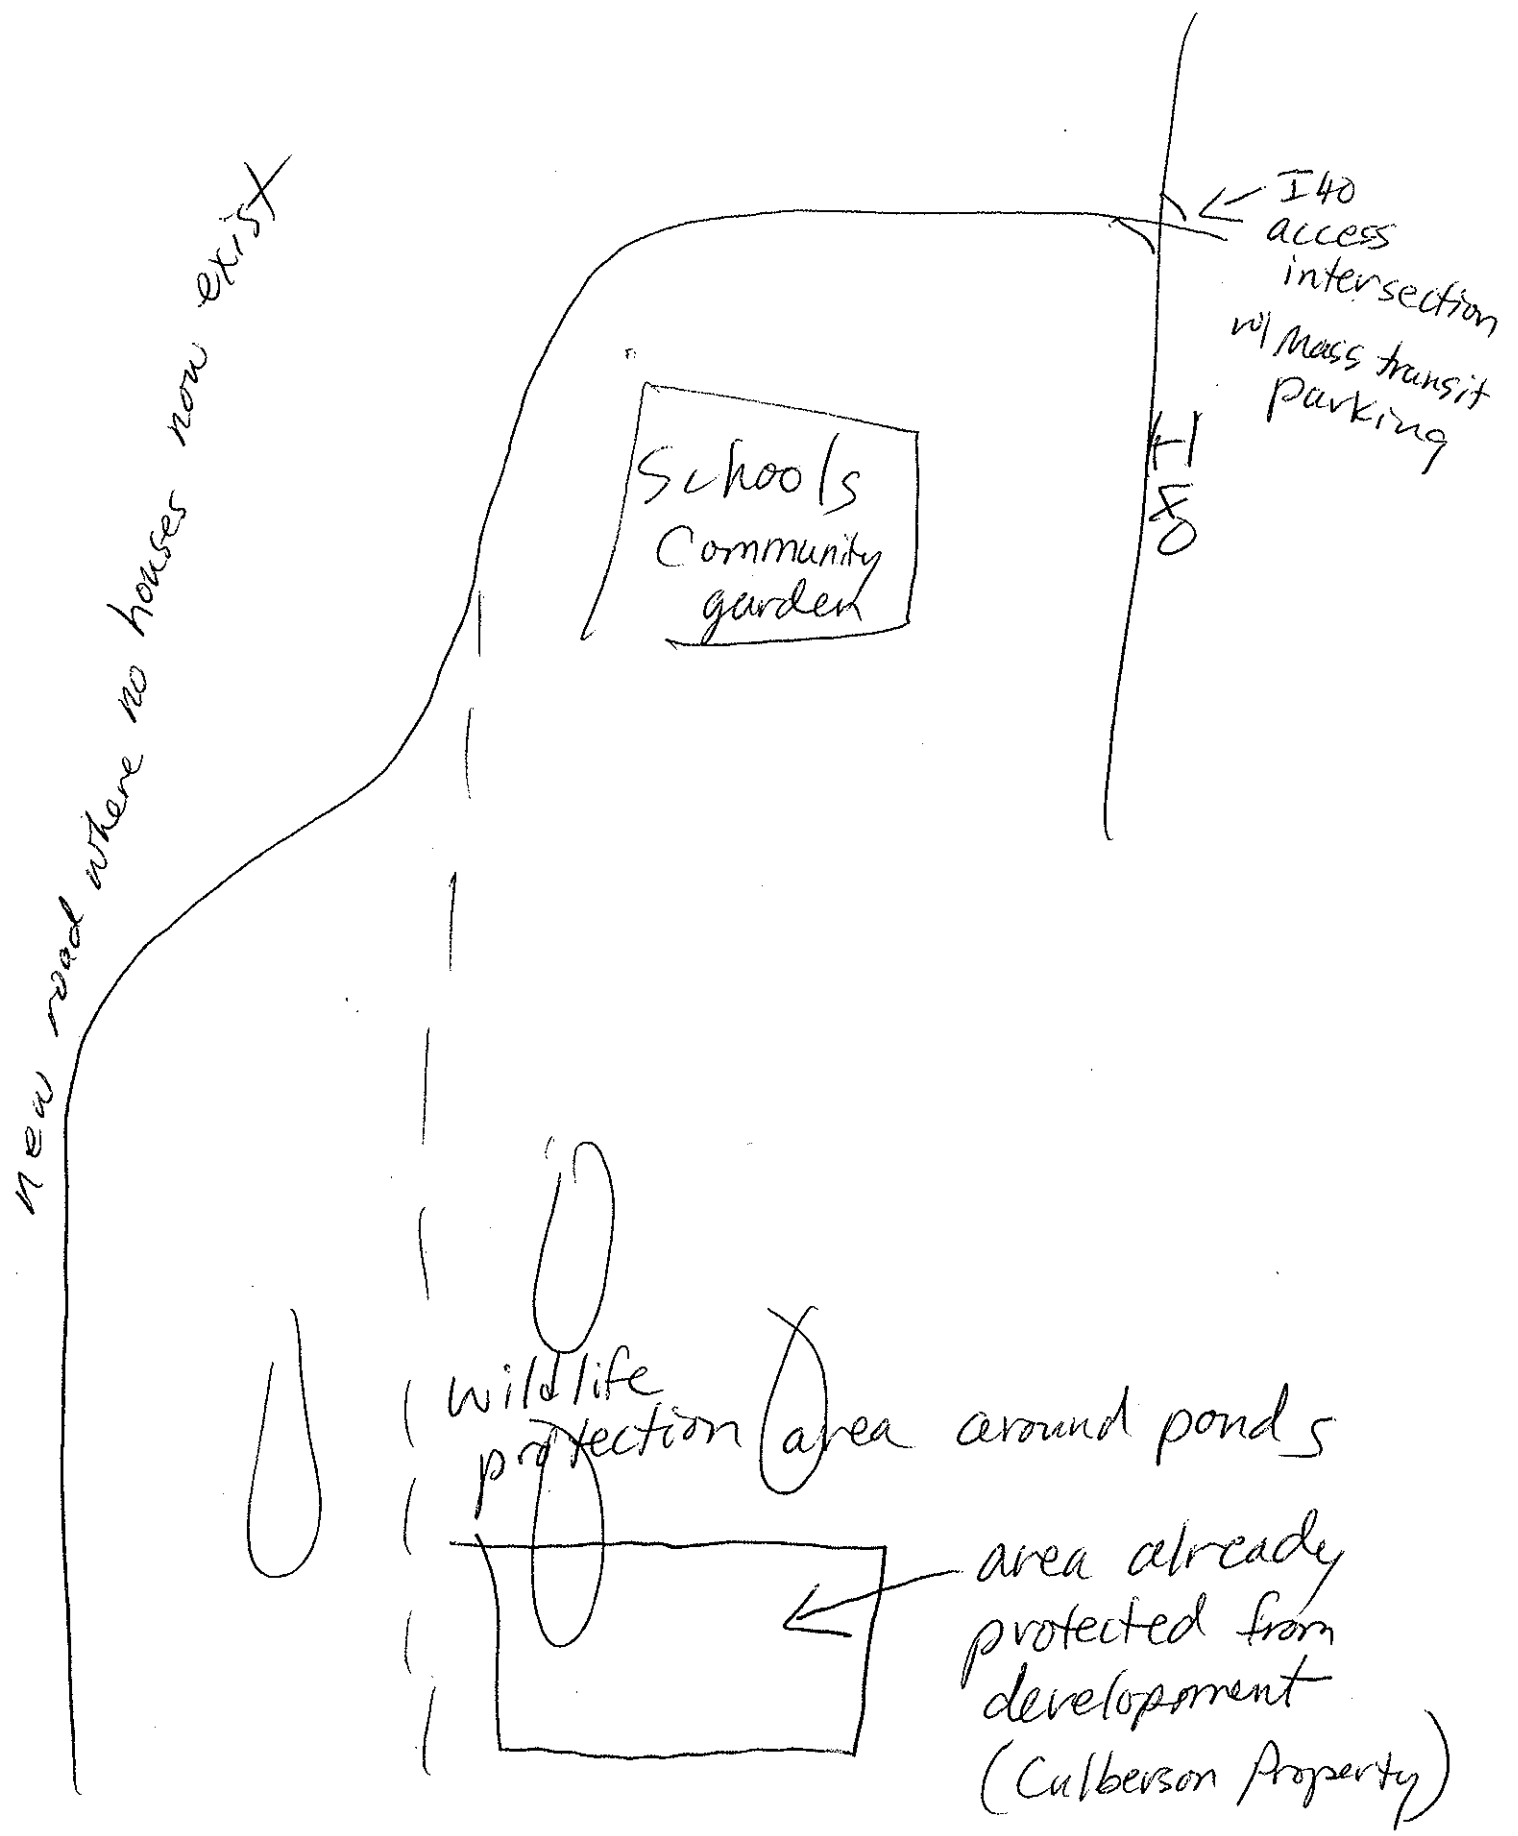 new road where no houses now exist
I40
access
intersection
w/ Mass transit
parking
I 40
Schools
Community
garden
wildlife
protection area around ponds
area already
protected from
development
(Culberson Property)